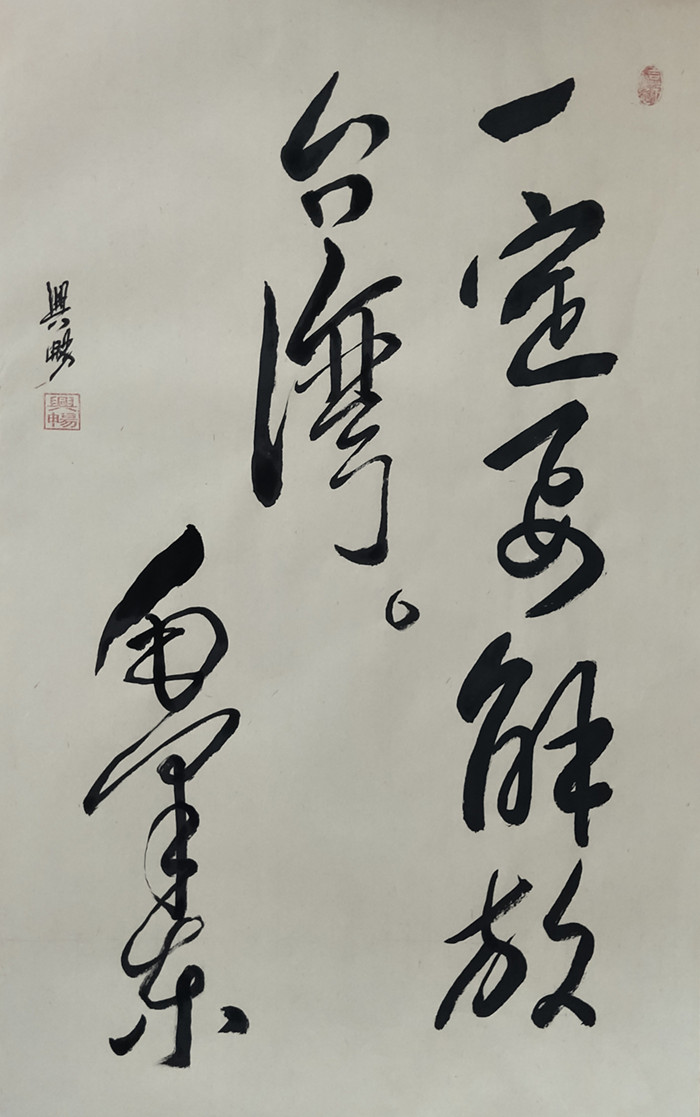 一定要解放
台湾。
毛泽东
興暢
興暢